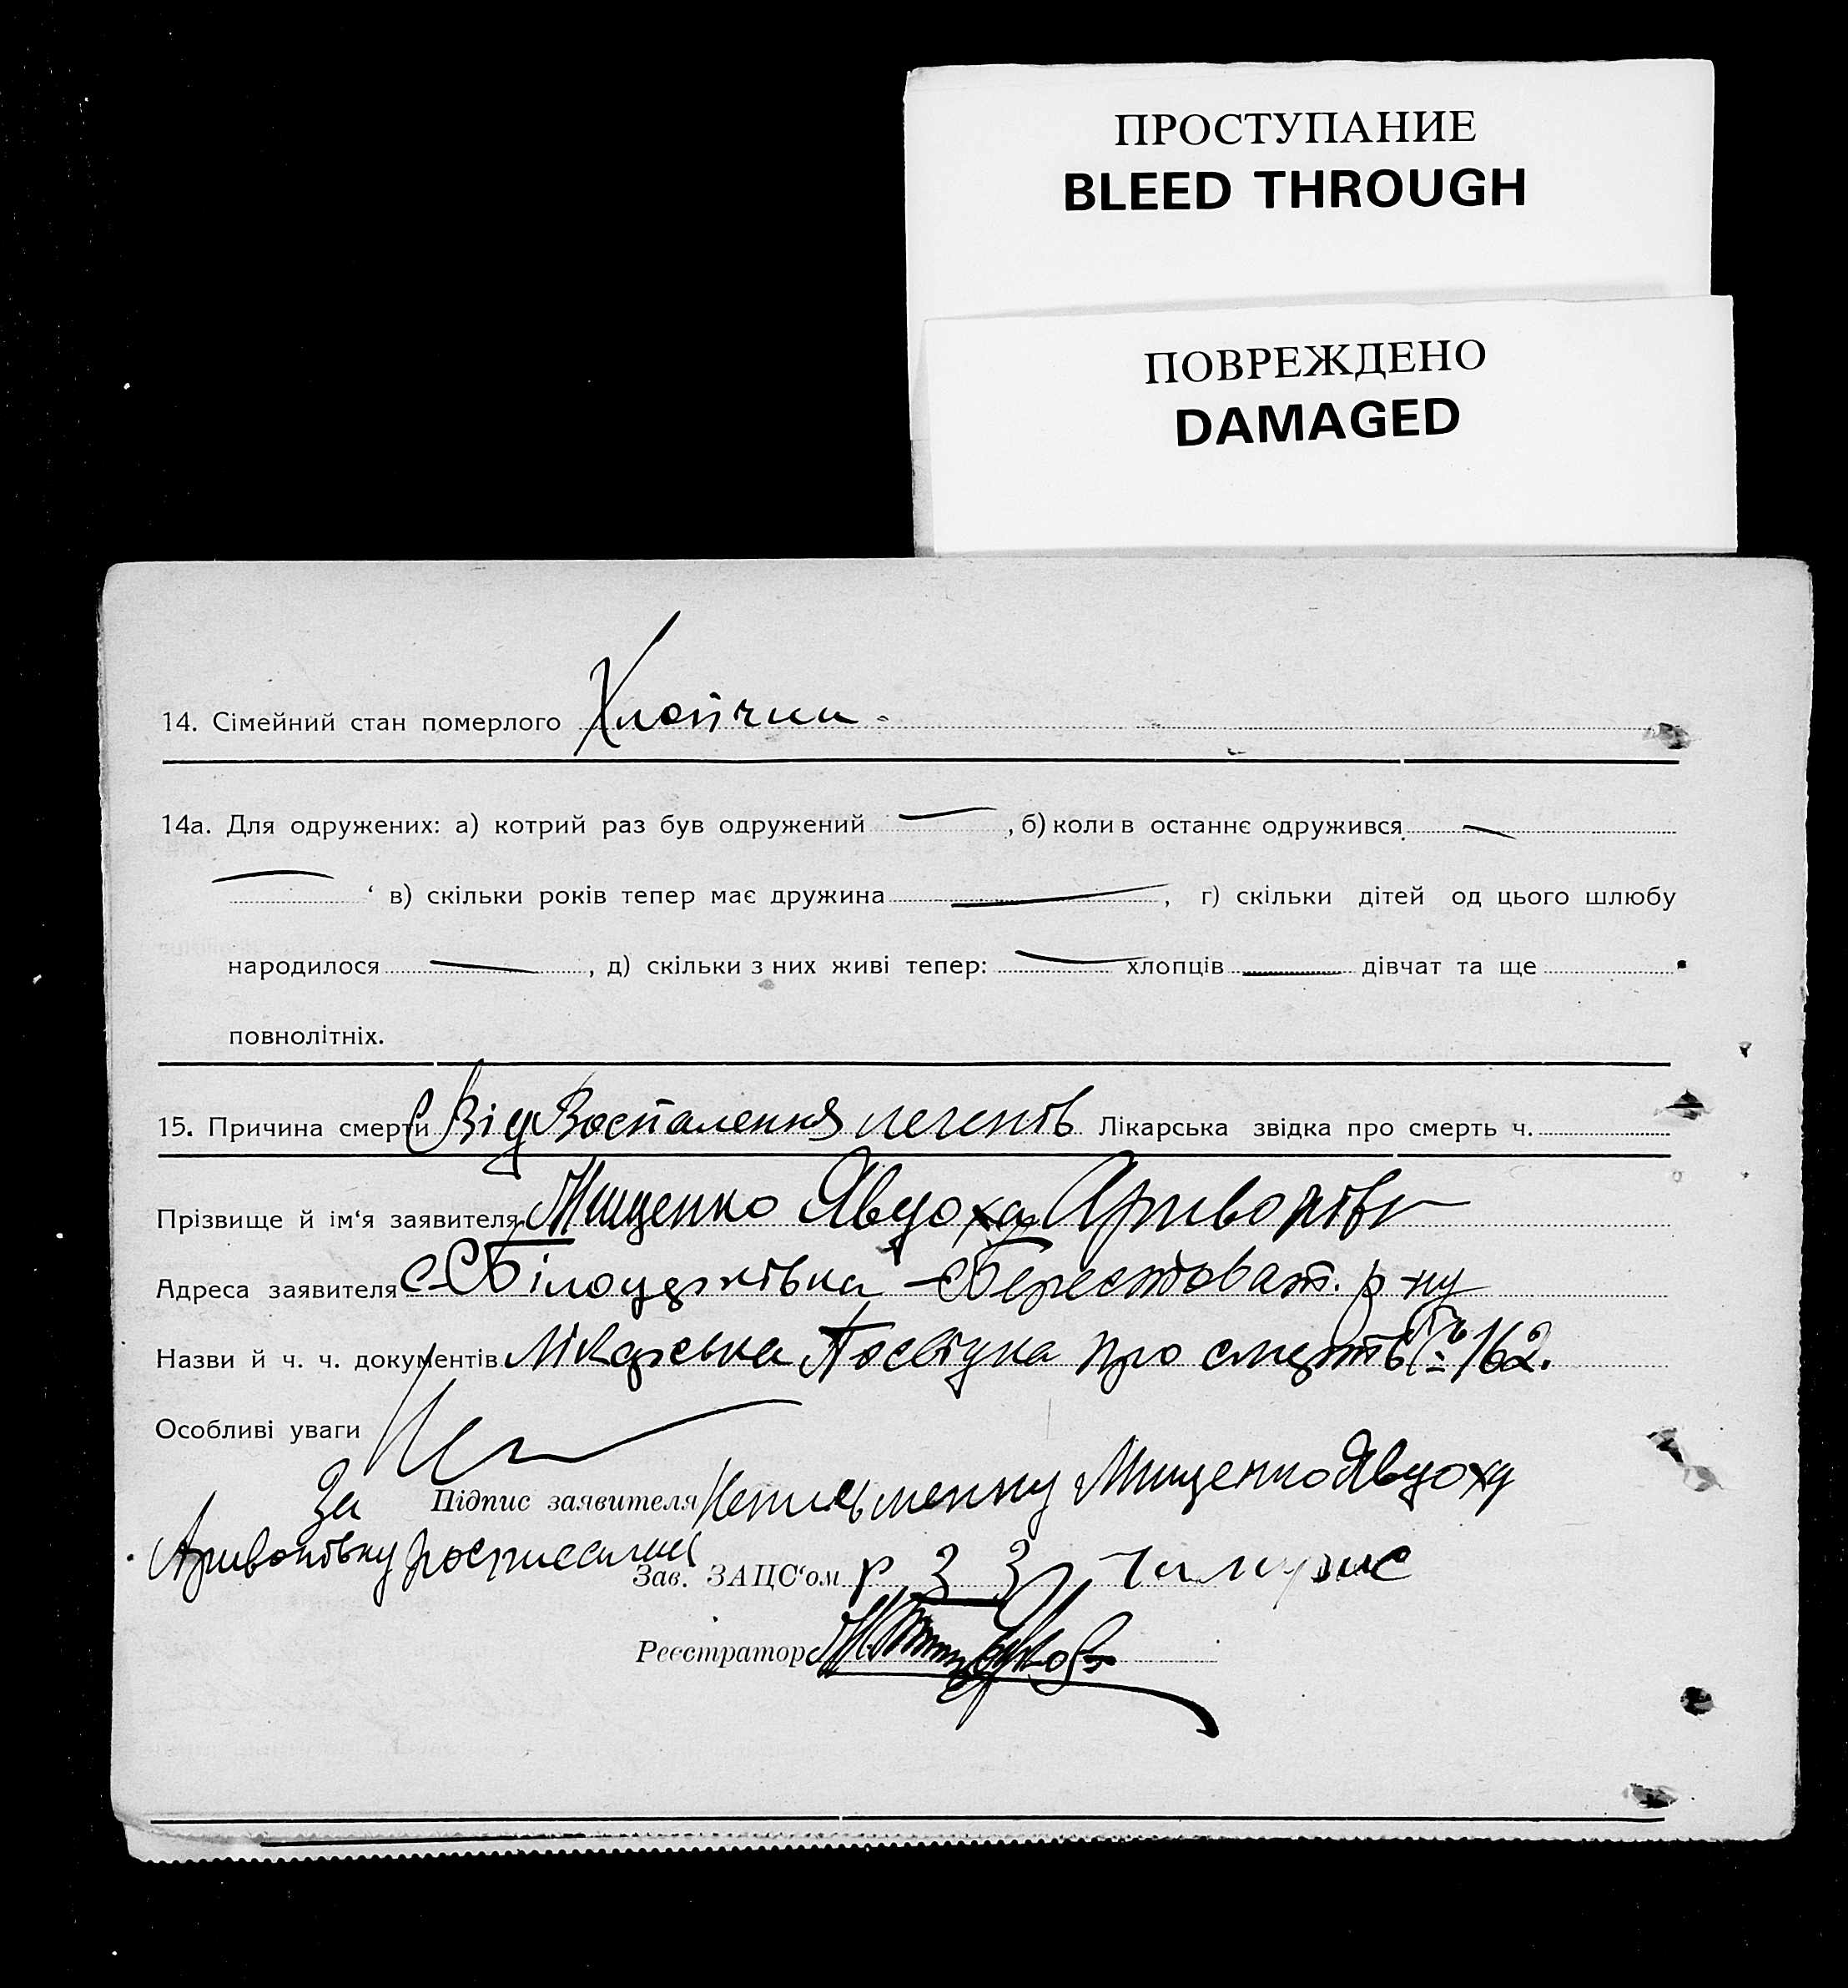 ПРОСТУПАНИЕ
BLEED THROUGH
ПОВРЕЖДЕНО
DAMAGED
14. Сімейний стан померлого Хлопчик.
14а. Для одружених: а) котрий раз був одружений — , б) коли в останнє одружився —
— ‘ в) скільки років тепер має дружина — , г) скільки дітей од цього шлюбу
народилося — , д) скільки з них живі тепер: — хлопців — дівчат та ще
повнолітніх.
15. Причина смерти Від Воспалення легенів Лікарська звідка про смерть ч.
Прізвище й ім‘я заявителя Мищенко Явдоха
Адреса заявителя с. Білоцерківка Берестоват. р-ну
Назви й ч. ч. документів Лікарська Посвідка про смерть № 162.
Особливі уваги
За Підпис заявителя Неписьменну Мищенко Явдоху
Зав. ЗАЦС‘ом
Реєстратор